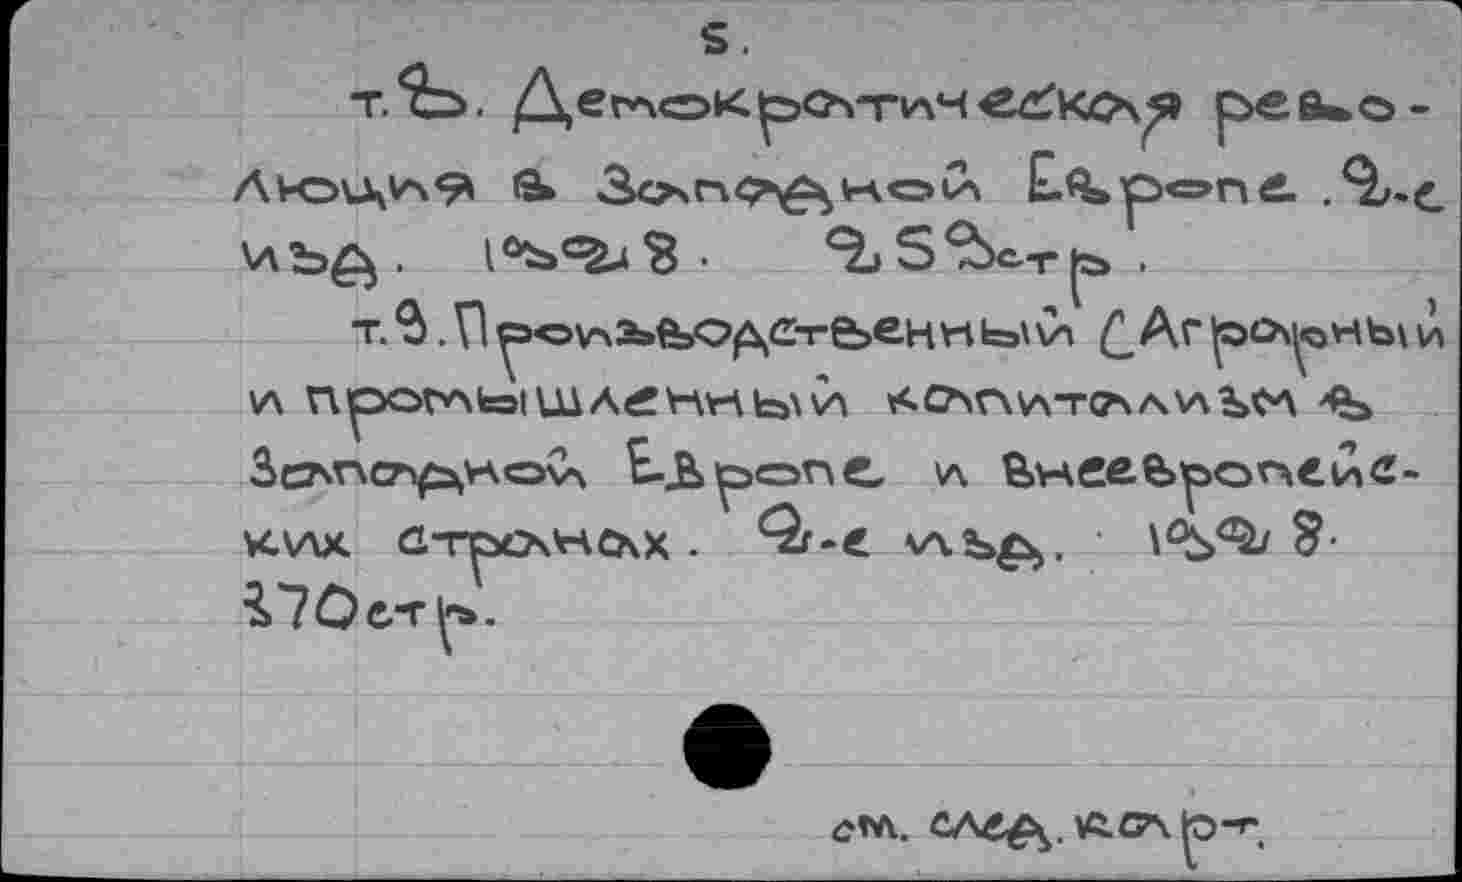 5.
т.2. Демократическая рево-
люция в Западной Европе. 2-е
изд. 1928. 259стр.
т.3. Производственный (Аграрный
и промышленный капитализм в
Западной Европе и внеевропейс-
ких странах. 2-е изд. 1928.
370стр.
см. след. карт.